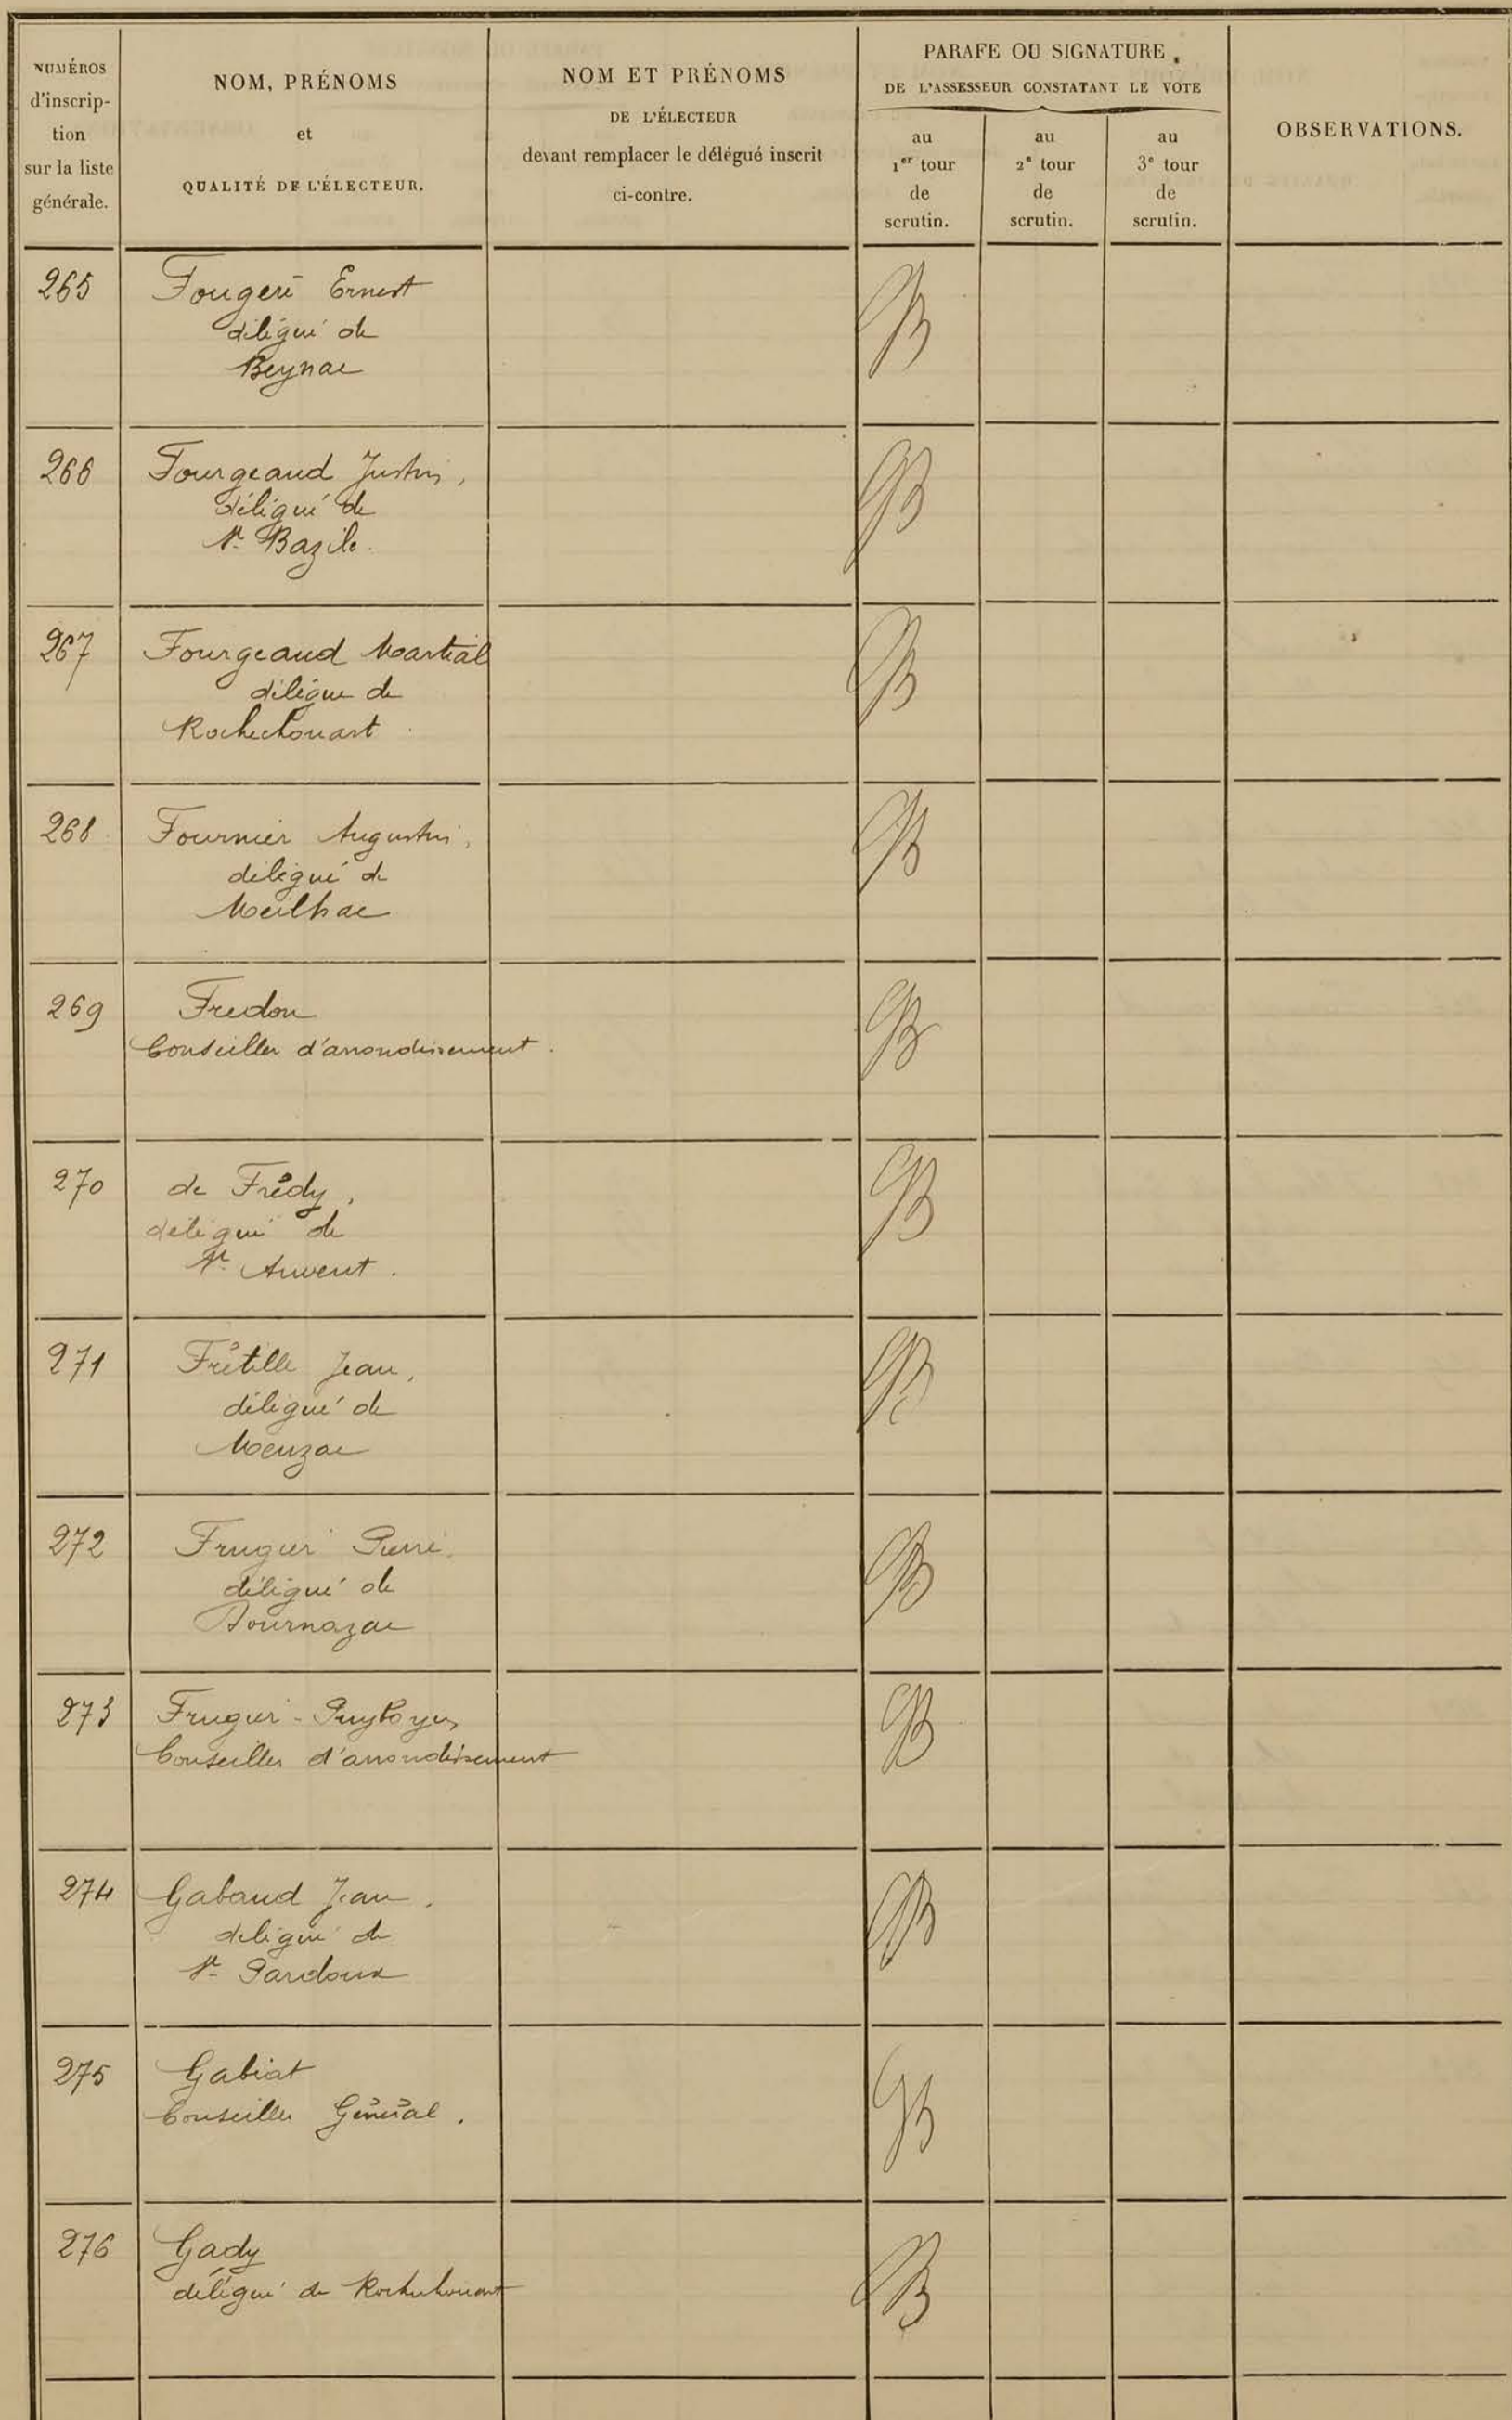 NUMÉROS
d'inscrip-
tion
sur la liste
générale.
NOM, PRÉNOMS
et
QUALITÉ DE L'ÉLECTEUR.
NOM ET PRÉNOMS
DE L'ÉLECTEUR
devant remplacer le délégué inscrit
ci-contre.
PARAFE OU SIGNATURE
DE L'ASSESSEUR CONSTATANT LE VOTE
au
1er tour
de
scrutin.
au
2e tour
de
scrutin.
au
3e tour
de
scrutin.
OBSERVATIONS.
265
Fougeré Ernest
délégué de
Beynac
B
266
Fourgeaud Justin,
délégué de
St. Bazile.
B
267
Fourgeaud Martial
délégué de
Rochechouart
B
268
Fournier Augustin,
délégué de
Meilhac
B
269
Fredon
Conseiller d'arrondissement.
B
270
de Frédy,
délégué de
St. Auvent.
B
271
Frétille Jean,
délégué de
Meuzac
B
272
Frugier Pierre
délégué de
Bournazac
B
273
Frugier-
Conseiller d'arrondissement
B
274
Gabaud Jean.
délégué de
St. Pardoux
B
275
Gabiat
Conseiller Général.
B
276
Gady
délégué de Rochechouart
B